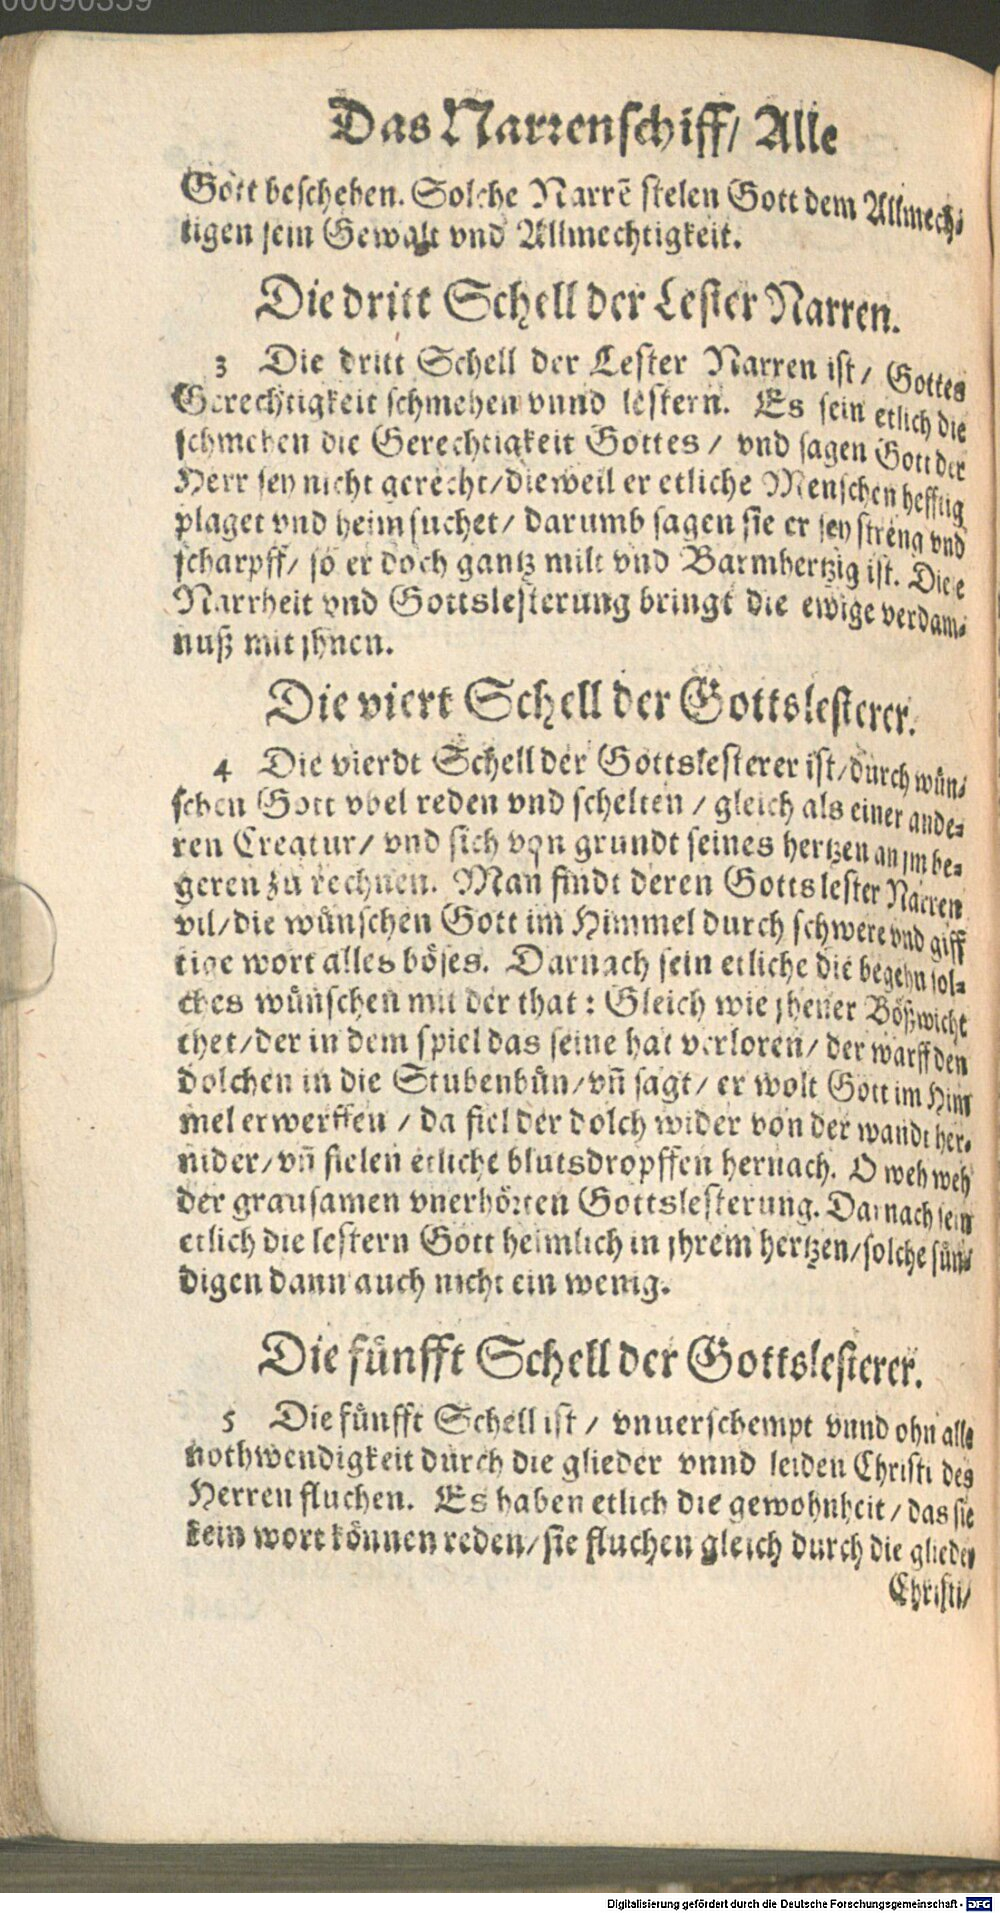 00090359
Das Narrenschiff/ Alle
Gott beschehen. Solche Narrē stelen Gott dem Allmech-
tigen sein Gewalt vnd Allmechtigkeit.
Die dritt Schell der Lester Narren.
3 Die dritt Schell der Lester Narren ist/ Gottes
Gerechtigkeit schmehen vnnd lestern. Es sein etlich die
schmehen die Gerechtigkeit Gottes/ vnd sagen Gott der
Herr sey nicht gerecht/ dieweil er etliche Menschen hefftig
plaget vnd heimsuchet/ darumb sagen sie er sey streng vnd
scharpff/ so er doch gantz milt vnd Barmhertzig ist. Diese
Narrheit vnd Gottslesterung bringt die ewige verdam-
nuß mit jhnen.
Die viert Schell der Gottslesterer.
4 Die vierdt Schell der Gottslesterer ist/ durch wün-
schen Gott vbel reden vnd schelten/ gleich als einer ande-
ren Creatur/ vnd sich von grundt seines hertzen an jm be-
geren zu rechnen. Man findt deren Gottslester Narren
vil/ die wünschen Gott im Himmel durch schwere vnd giff
tige wort alles böses. Darnach sein etliche die begehn sol-
ches wünschen mit der that: Gleich wie jhener Bößwicht
thet/ der in dem spiel das seine hat verloren/ der warff den
dolchen in die Stubenbün/ vñ sagt/ er wolt Gott im Him
mel erwerffen/ da fiel der dolch wider von der wandt her-
nider/ vñ fielen etliche blutsdropffen hernach. O weh weh
der grausamen vnerhörten Gottslesterung. Darnach sein
etlich die lestern Gott heimlich in jhrem hertzen/ solche sün-
digen dann auch nicht ein wenig.
Die fünfft Schell der Gottslesterer.
5 Die fünfft Schell ist/ vnuerschempt vnnd ohn alle
nothwendigkeit durch die glieder vnnd leiden Christi des
Herren fluchen. Es haben etlich die gewohnheit/ das sie
kein wort können reden/ sie fluchen gleich durch die glieder
Christi/
Digitalisierung gefördert durch die Deutsche Forschungsgemeinschaft - DFG